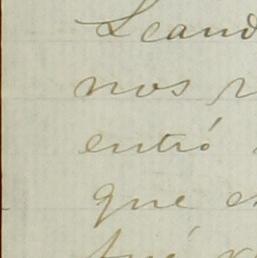 Leand
nos
entró
que
fué